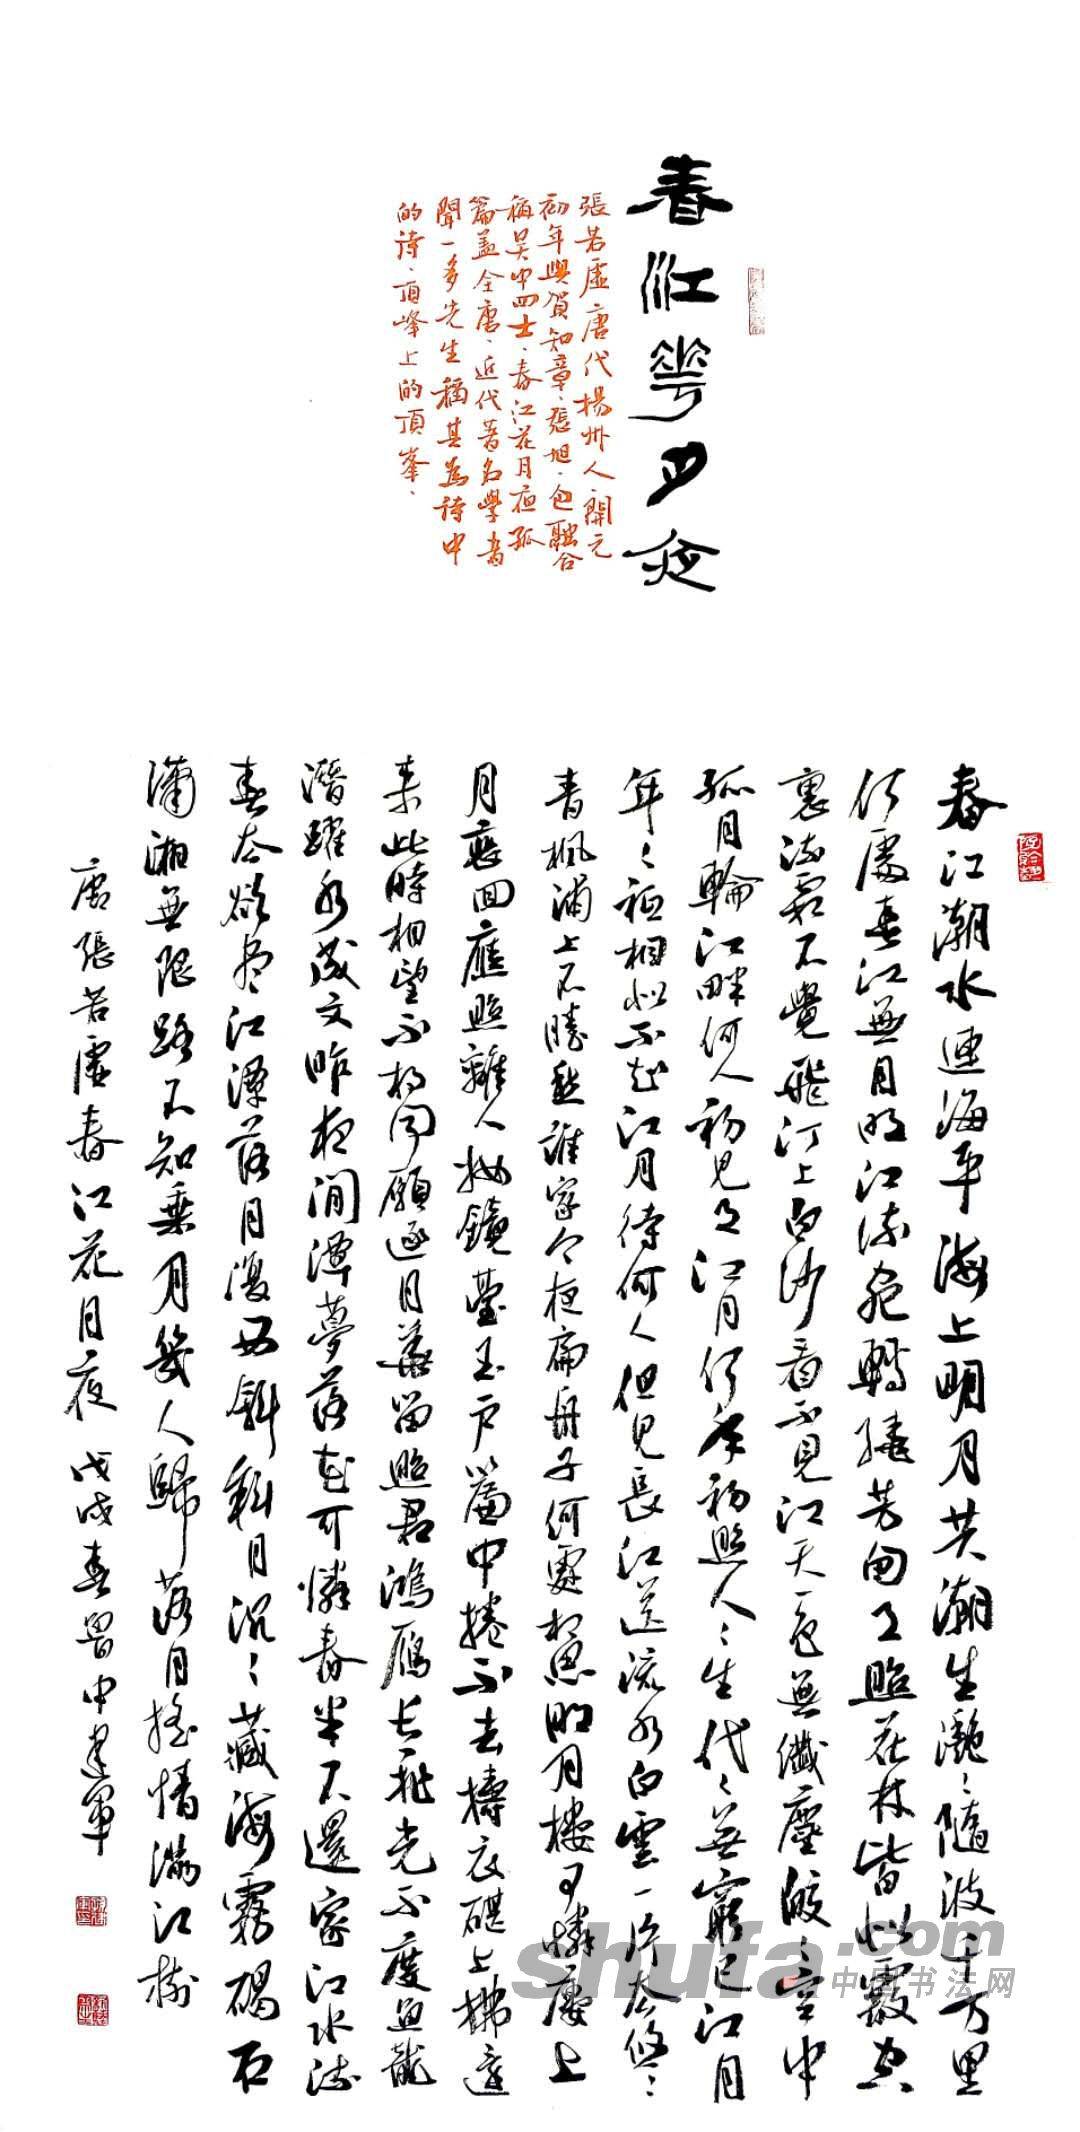 春江華月夜
張若虛唐代揚州人開元
初年與賀知章張旭包融合
稱吳中四士春江花月夜孤
篇蓋全唐近代著名學者
聞一多先生稱其為詩中
的詩頂峰上的頂峯
春江潮水連海平海上明月共潮生灩〻隨波千万里
何處春江無月明江流宛轉繞芳甸月照花林皆似霰空
裏流霜不覺飛汀上白沙看不見江天一色無纖塵皎〻空中
孤月輪江畔何人初見月江月何年初照人〻生代〻無窮已江月
年〻祗相似不知江月待何人但見長江送流水白雲一片去悠〻
青楓浦上不勝愁誰家今夜扁舟子何處相思明月樓可憐樓上
月裴回應照離人妝鏡臺玉戶簾中捲不去擣衣碪上拂還
來此時相望不相聞願逐月華留照君鴻雁長飛光不度魚龍
潛躍水成文昨夜閒潭夢落花可憐春半不還家江水流
春去欲盡江潭落月復西斜斜月沉〻藏海霧碣石
瀟湘無限路不知乘月幾人歸落月搖情滿江樹
唐張若虛春江花月夜戊戌春申建軍
shufa.com
中国书法网